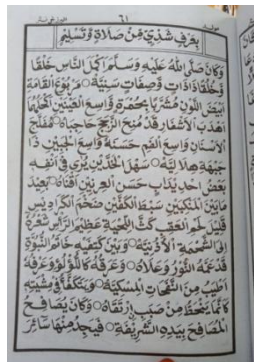 ٦١
بِعَرْفٍ شَذِيٍّ مِنْ صَلَاةٍ وَتَسْلِيمٍ
وَكَانَ صَلَّى اللهُ عَلَيْهِ وَسَلَّمَ أَكْمَلَ النَّاسِ خَلْقًا
وَخُلُقًا ذَا ذَاتٍ وَصِفَاتٍ سَنِيَّةٍ ۞ مَرْبُوعَ الْقَامَةِ
أَبْيَضَ اللَّوْنِ مُشْرَبًا بِحُمْرَةٍ وَاسِعَ الْعَيْنَيْنِ أَكْحَلَهُمَا
أَهْدَبَ الْأَشْفَارِ قَدْ مُنِحَ الزَّجَجَ حَاجِبَاهُ ۞ مُفَلَّجَ
الْأَسْنَانِ وَاسِعَ الْفَمِ حَسَنَهُ وَاسِعَ الْجَبِينِ ذَا
جَبْهَةٍ هِلَالِيَّةٍ ۞ سَهْلَ الْخَدَّيْنِ يُرَى فِي أَنْفِهِ
بَعْضُ احْدِيْدَابٍ حَسَنَ الْعِرْنِيْنِ أَقْنَاهُ ۞ بَعِيْدَ
مَا بَيْنَ الْمَنْكِبَيْنِ سَبْطَ الْكَفَّيْنِ ضَخْمَ الْكَرَادِيْسِ
قَلِيْلَ لَحْمِ الْعَقِبِ كَثَّ اللِّحْيَةِ عَظِيْمَ الرَّأْسِ شَعْرُهُ
إِلَى الشَّحْمَةِ الْأُذُنِيَّةِ ۞ وَبَيْنَ كَتِفَيْهِ خَاتَمُ النُّبُوَّةِ
قَدْ عَمَّهُ النُّوْرُ وَعَلَاهُ ۞ وَعَرَقُهُ كَاللُّؤْلُؤِ وَعَرْفُهُ
أَطْيَبُ مِنَ النَّفَحَاتِ الْمِسْكِيَّةِ ۞ وَيَتَكَفَّأُ فِي مِشْيَتِهِ
كَأَنَّمَا يَنْحَطُّ مِنْ صَبَبٍ ارْتَقَاهُ ۞ وَكَانَ يُصَافِحُ
الْمُصَافِحَ بِيَدِهِ الشَّرِيْفَةِ ۞ فَيَجِدُ مِنْهَا سَائِرَ